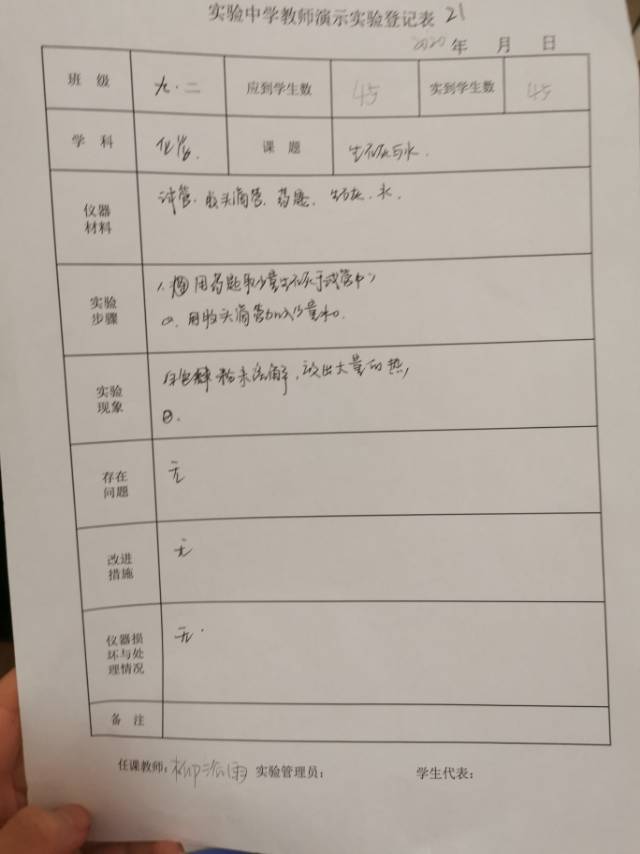 实验中学教师演示实验登记表 21
2020 年 月 日
班 级 九.二 应到学生数 45 实到学生数 45
学 科 化学. 课 题 生石灰与水.
仪器材料 试管. 胶头滴管. 药匙. 生石灰. 水.
实验步骤 1. 用药匙取少量生石灰于试管中;
2. 用胶头滴管加入少量水.
实验现象 白色粉末溶解,放出大量的热,
存在问题 无
改进措施 无
仪器损坏与处理情况 无.
备 注
任课教师: 实验管理员: 学生代表: